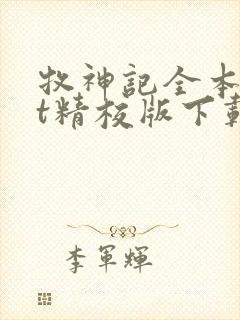 牧神記全本
t精校版下載
李軍輝